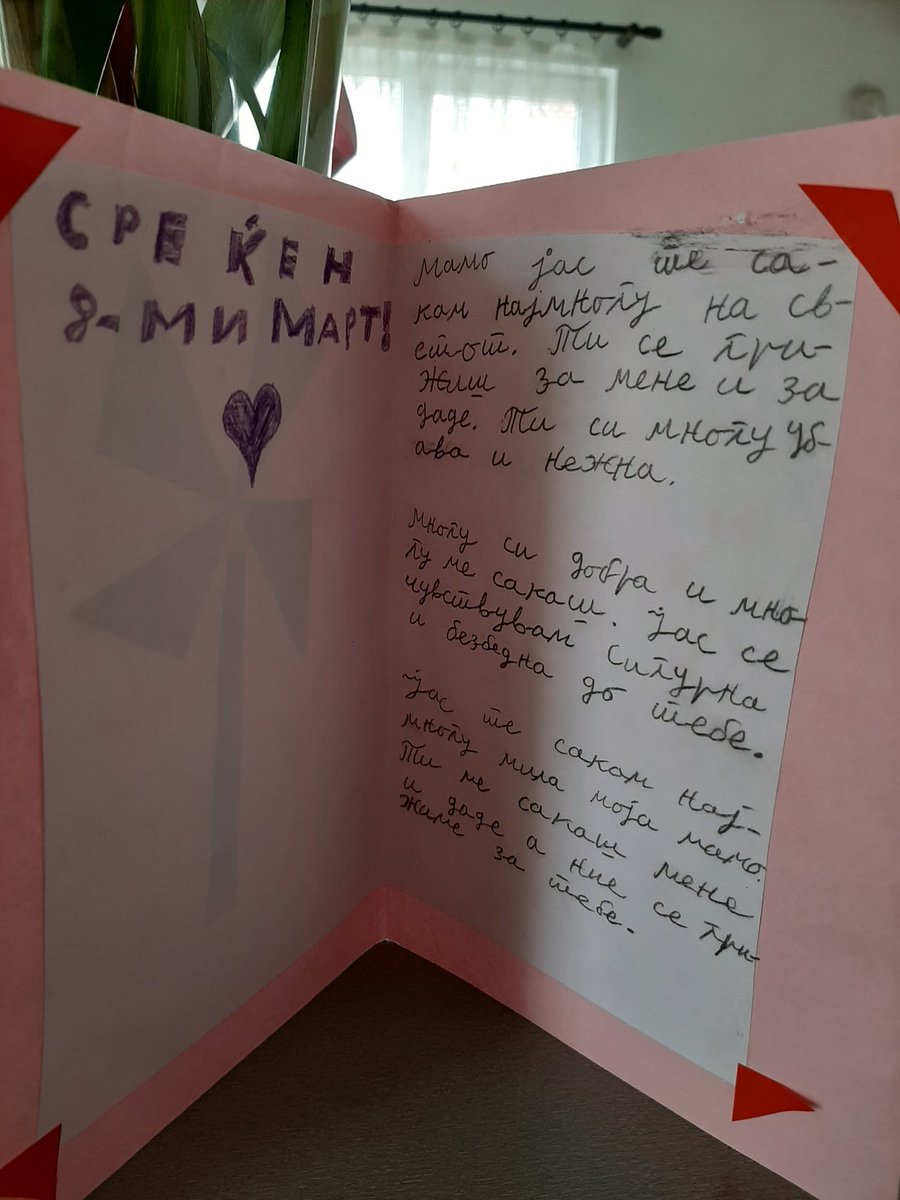 СРЕЌЕН
8-МИ МАРТ!
мамо јас те са-
кам најмногу на св-
етот. Ти се гри-
жиш за мене и за
даде. Ти си многу уб-
ава и нежна.
многу си добра и мно-
гу ме сакаш. Јас се
чувствувам сигурна
и безбедна до тебе.
Јас те сакам нај-
многу мила моја мамо.
Ти ме сакаш мене
и даде а ние се гри-
жиме за тебе.